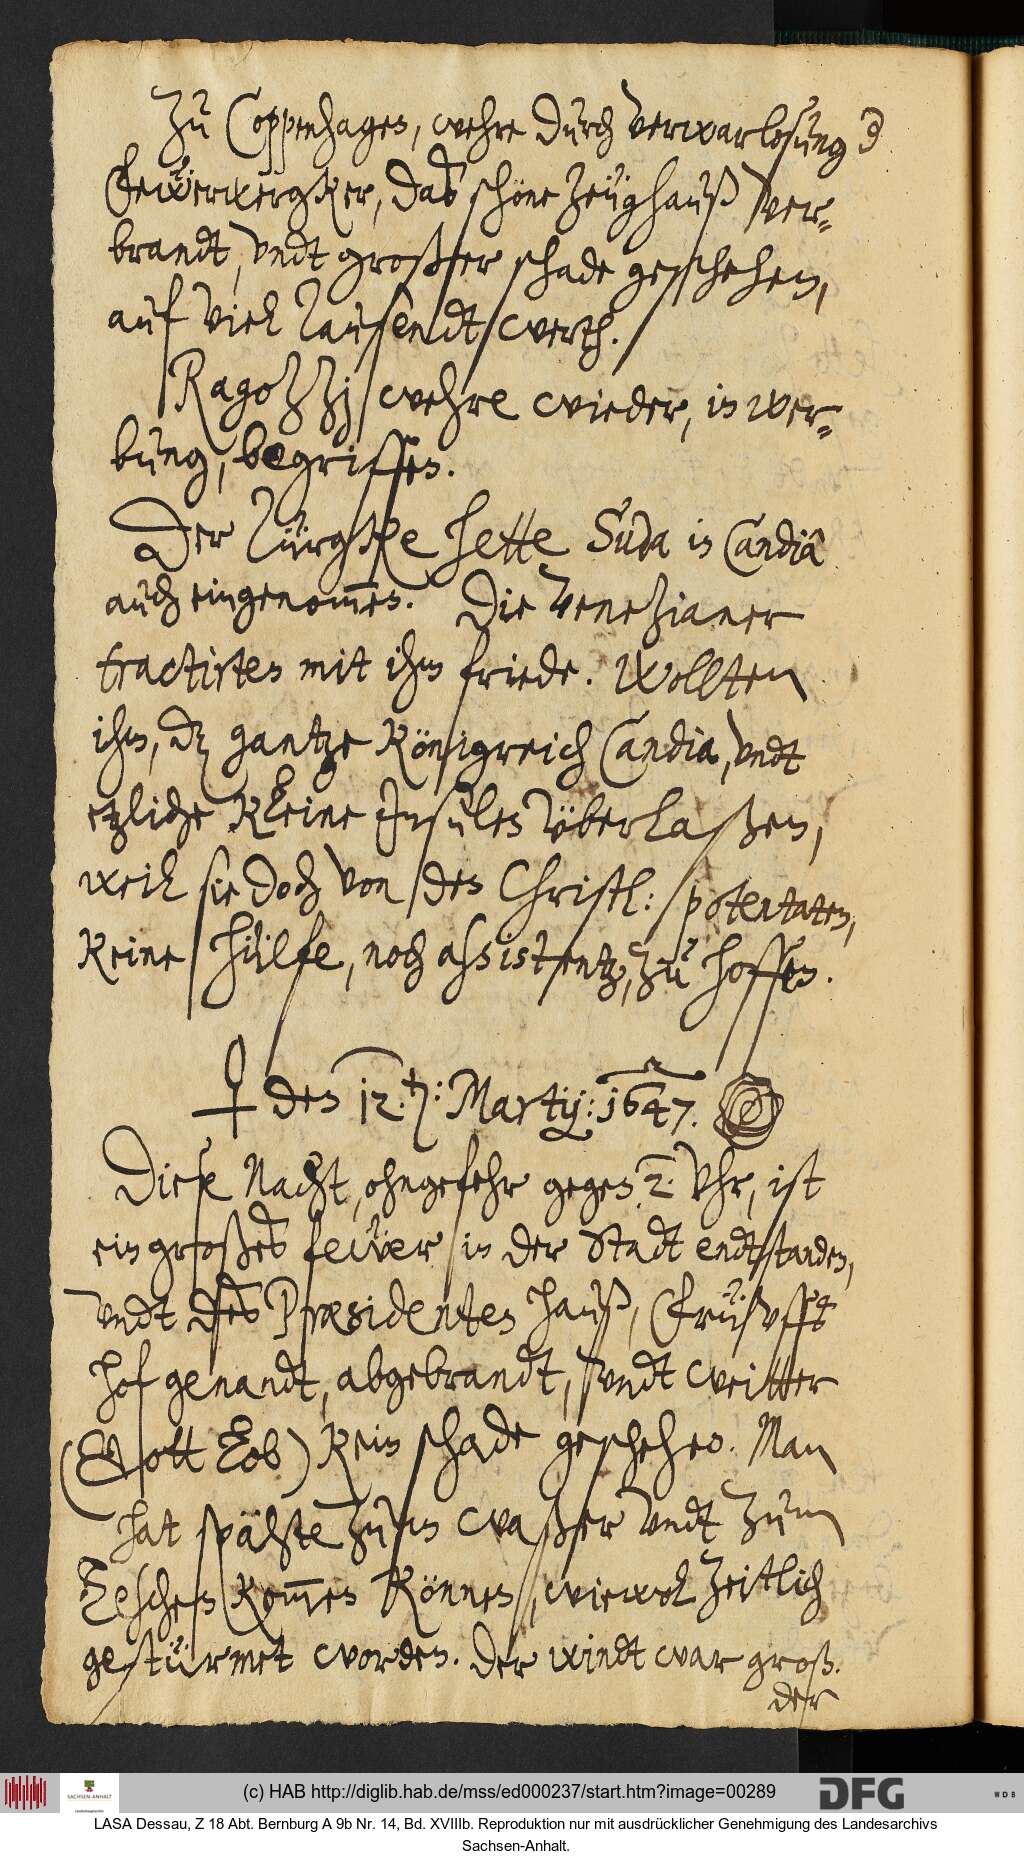 Zu Coppenhagen, wehre durch verwarlosung d
Fewerwergker, das schöne Zeüghauß ver-
brandt, vndt großer schade geschehen,
auf viel Tausendt werth.
Ragozzj wehre wieder, in wer-
bung, begriffen.
Der Türgke hette Suda in Candia
auch eingenom̅en. Die Venezianer
tractirten mit ihm friede. Wollten
ihm, dz gantze Königreich Candia, vndt
etzliche kleine Insulen überlaßen,
weil sie doch von den Christl: potentaten,
keine hülfe, noch assistentz, zu hoffen.
♀ den 12.t: Martij: 1647.
Diese Nacht, ohngefehr gegen 2. Vhr, ist
ein großes fewer in der Stadt endtstanden,
vndt des Præsidenten hauß, (Früh vffs
hof genandt, abgebrandt, vndt weitter
(Gott lob) kein schade geschehen. Man
hat spähte zum waßer vndt zum
Leschen kom̅en können, wiewol zeitlich
gestürmet worden. Der windt war groß.
der
(c) HAB http://diglib.hab.de/mss/ed000237/start.htm?image=00289
SACHSEN-ANHALT
DFG
WDB
LASA Dessau, Z 18 Abt. Bernburg A 9b Nr. 14, Bd. XVIIIb. Reproduktion nur mit ausdrücklicher Genehmigung des Landesarchivs
Sachsen-Anhalt.